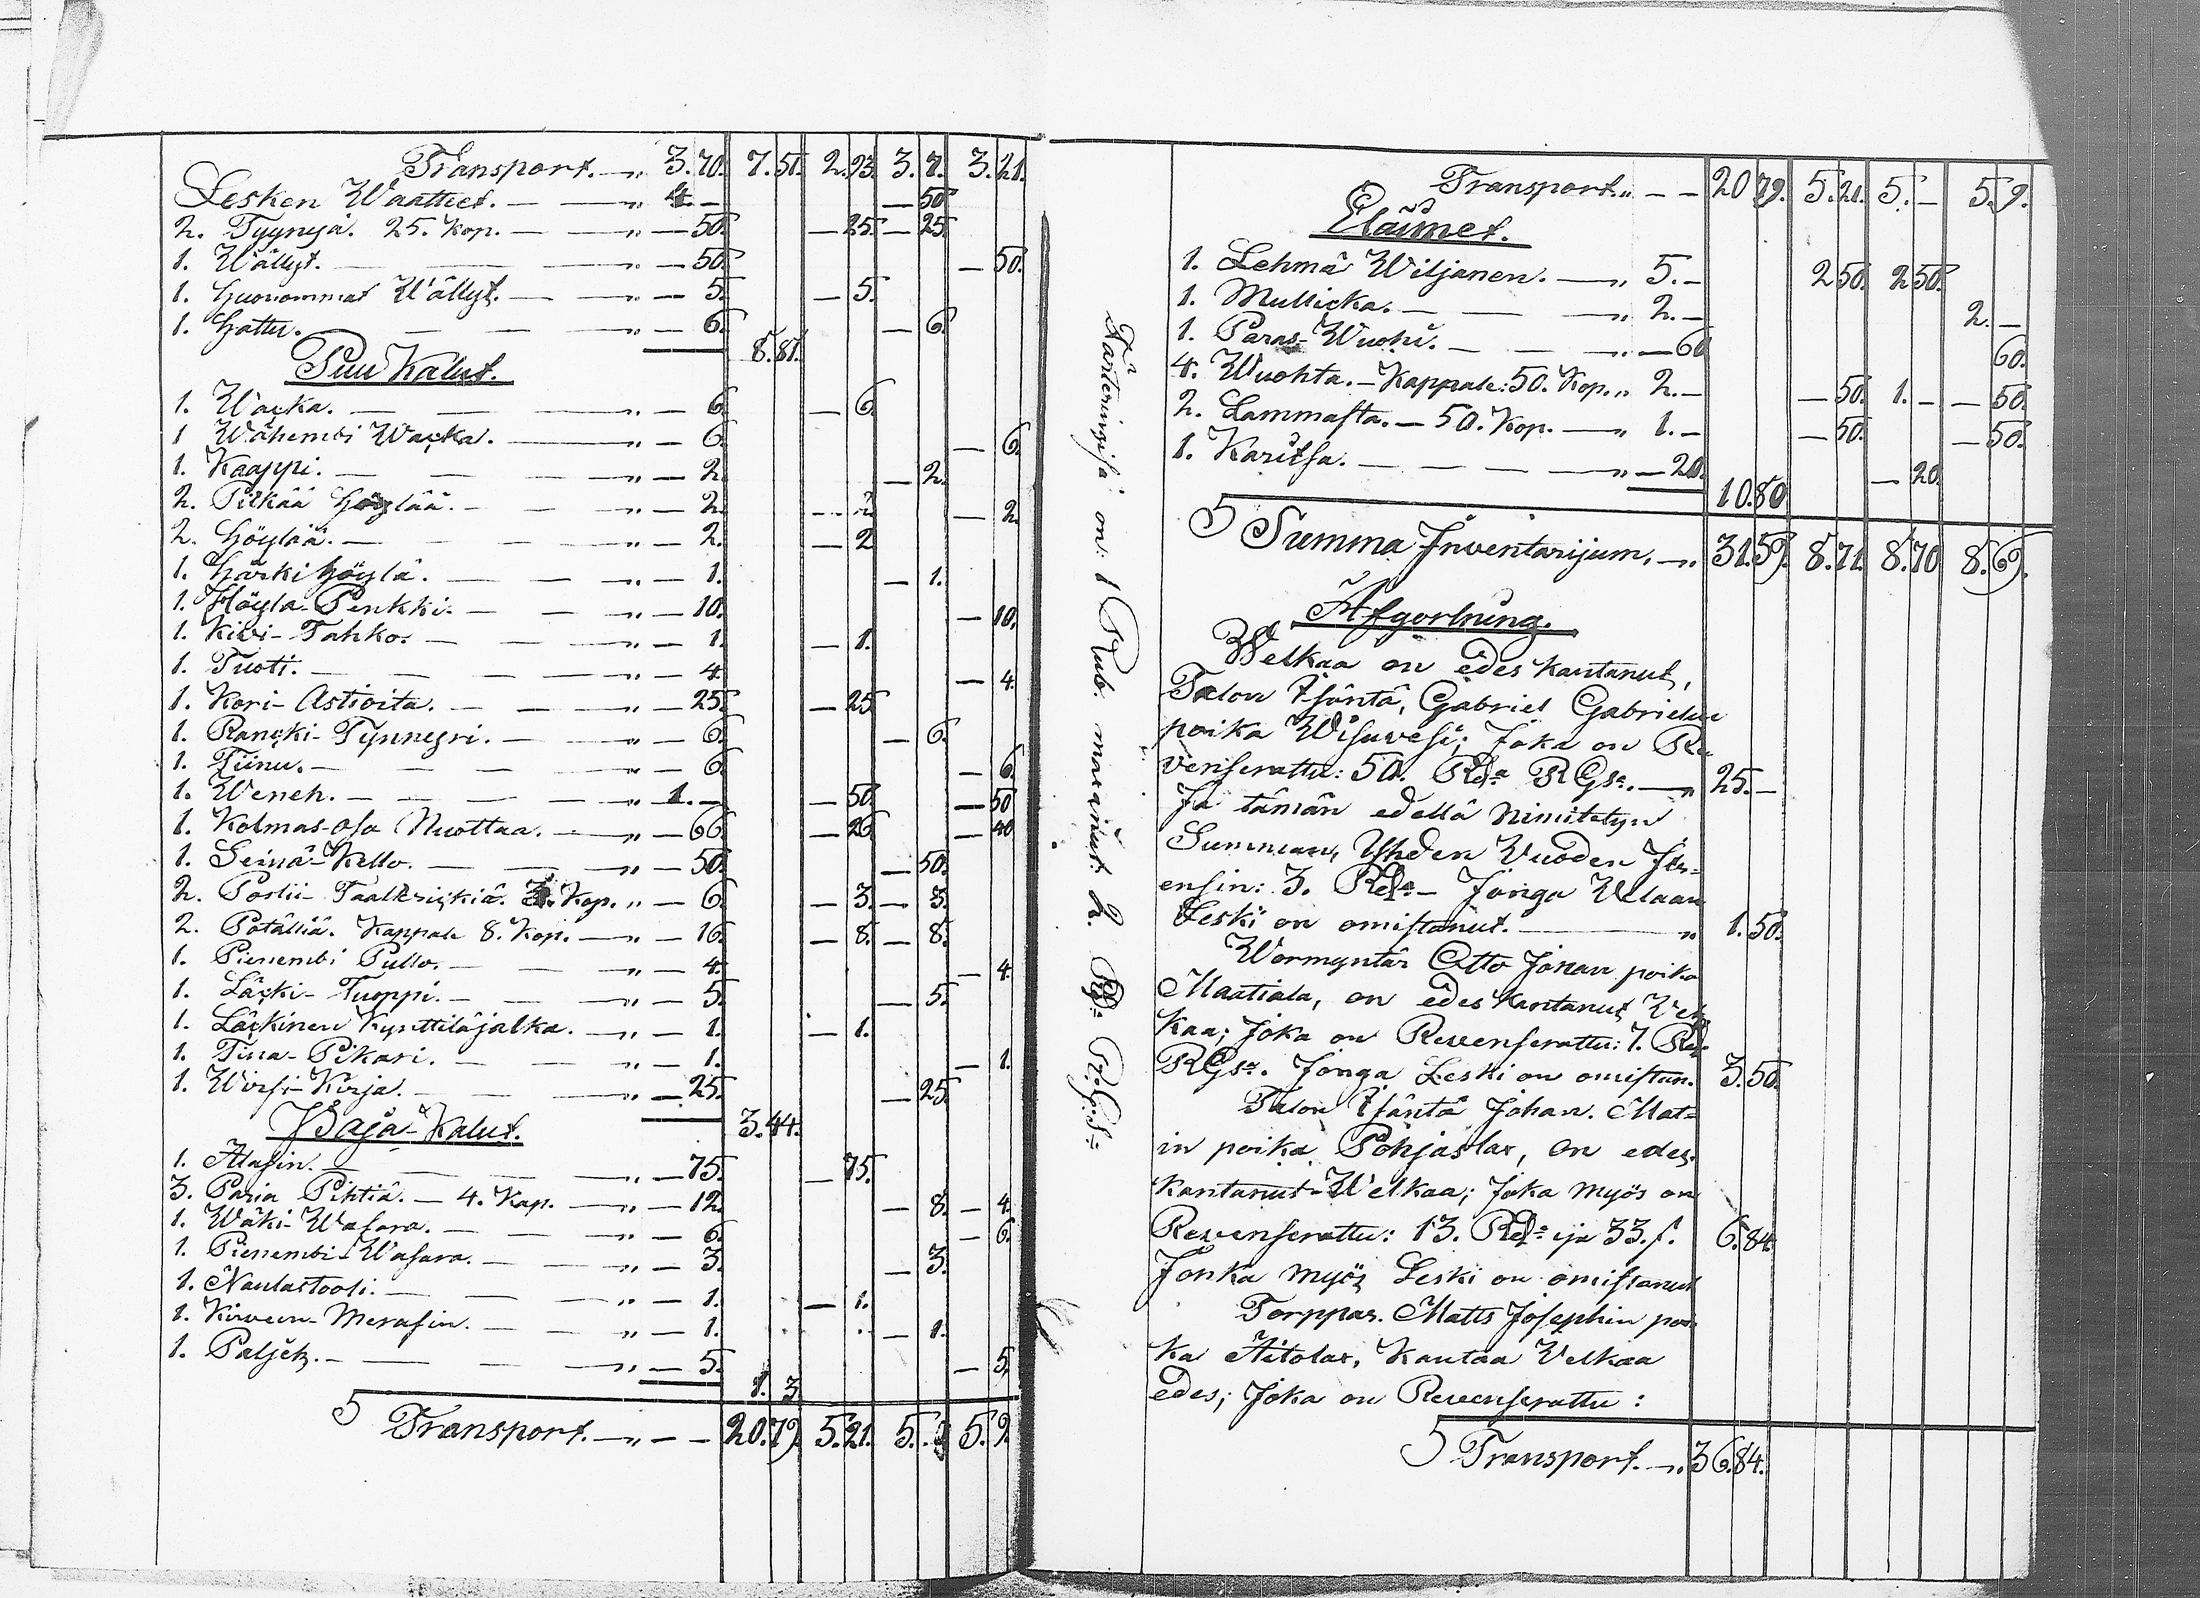 Transport. — „ 3.70. 7.51. 2.93. 3.7. 3.21.
Lesken Waatteet. — — „ 4. — — 50
2. Tyynyjä. 25. Kop. — — „ — 50. — 25. — 25.
1. Wällyt. — — „ — 50. — 50.
1. Huonommat Wällyt. — — „ — 5. — 5.
1. Hattu. — — — „ — 6. — 6.
8.81.
Puu Kalut.
1. Wacka. — — — „ — 6. — 6.
1 Wähembi Wacka. — „ — 6. — 6.
1. Kaappi. — — — „ — 2. — 2.
2. Pitkää Höylää. — — „ — 2. — 2.
2. Höylää. — — — „ — 2. — 2
1. Härki Höylä. — — — „ — 1. — 1.
1. Höyla-Penkki. — — „ — 10. — 10.
1. Kivi-Tahko. — — — „ — 1. — 1.
1. Tuoti. — — — — „ — 4. — 4.
1. Kori-Astioita. — — — „ — 25. — 25
1. Rancki-Tynneyri. — — „ — 6. — 6.
1. Tiinu. — — — — „ — 6. — 6.
1. Weneh. — — — — „ 1. — — 50. — 50
1. Kolmas-osa Nuottaa. — „ — 66 — 26 — 40
1. Seinä-Kello. — — — „ — 50. — 50.
2. Poslii-Taaltriickiä. 3. Kop. „ — 6. — 3. — 3.
2. Potälliä. Kappale 8. Kop. — „ — 16. — 8. — 8.
1. Pienembi Pullo. — — „ — 4. — 4.
1. Läcki-Tuoppi. — — — „ — 5. — 5.
1. Läckinen Kynttiläjalka. — „ — 1. — 1.
1. Tina-Pikari. — — — „ — 1. — 1.
1. Wirsi-Kirja. — — — „ — 25. — 25.
3.44.
Paja-Kalut.
1. Alasin. — — — „ — 75. — 75.
3. Paria Pihtiä. — 4. Kap. — „ — 12. — 8. — 4.
1. Wäki-Wasara. — — — „ — 6. — 6.
1. Pienembi-Wasara. — — „ — 3. — 3.
1. Naulastooli. — — — „ — 1. — 1.
1. Kirveen-Merasin. — — „ — 1. — 1.
1. Paljet. — — — — „ — 5. — 5.
1. 3
Transport. — „ — — 20.79. 5.21. 5. 5.9.
Transport. „ — — 20 79. 5.21. 5. — 5.9.
Eläimet.
1. Lehmä Wiljanen. — „ 5. — 2 50. 2 50.
1. Mullicka. — — — „ 2. — 2. —
1. Paras-Wuohi. — — „ — 60 60.
4. Wuohta. — Kappale: 50. Kop. „ 2. — — 50. 1. — — 50.
2. Lammasta. — 50. Kop. — „ 1. — — 50. — 50.
1. Karitsa. — — — „ — 20. — 20.
10.80
Summa Inventarijum. — „ 31.59. 8.71. 8.70 8.69.
Afgorlning.
Welkaa on edes kantanut,
Talon Isäntä, Gabriel Gabrielin
poika Wisuvesi; Joka on Re
venserattu: 50. Rd:a RGs:. — „ 25. —
Ja tämän edellä nimitetyn
Summan, Yhden Vuoden In-
ensin: 3. Rd:a — Jonga Velaan
Leski on omistanut. — „ 1.50.
Wormyntär Otto Johan poika
Maatiala, on edes kantanut Vel
kaa; Joka on Revenserattu: 7. Rd:
RGs:. Jonga Leski on omistan. 3.50.
Talon Isäntä Johan. Mat-
in poika Pohjaslax, on edes.
Kantanut-Welkaa; Joka myös on
Revenserattu: 13. Rd:a ja 33. s. 6.84.
Jonka myös Leski on omistanut
Torppar. Matts Josephin poi
ka Aitolax, Kantaa Velkaa
edes; Joka on Revenserattu:
Transport. — „ 36.84.
on: 1 Rub. maxanut: 2. Rd:a R:G:s: